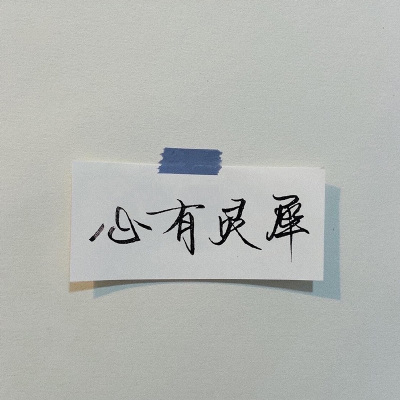 心有灵犀